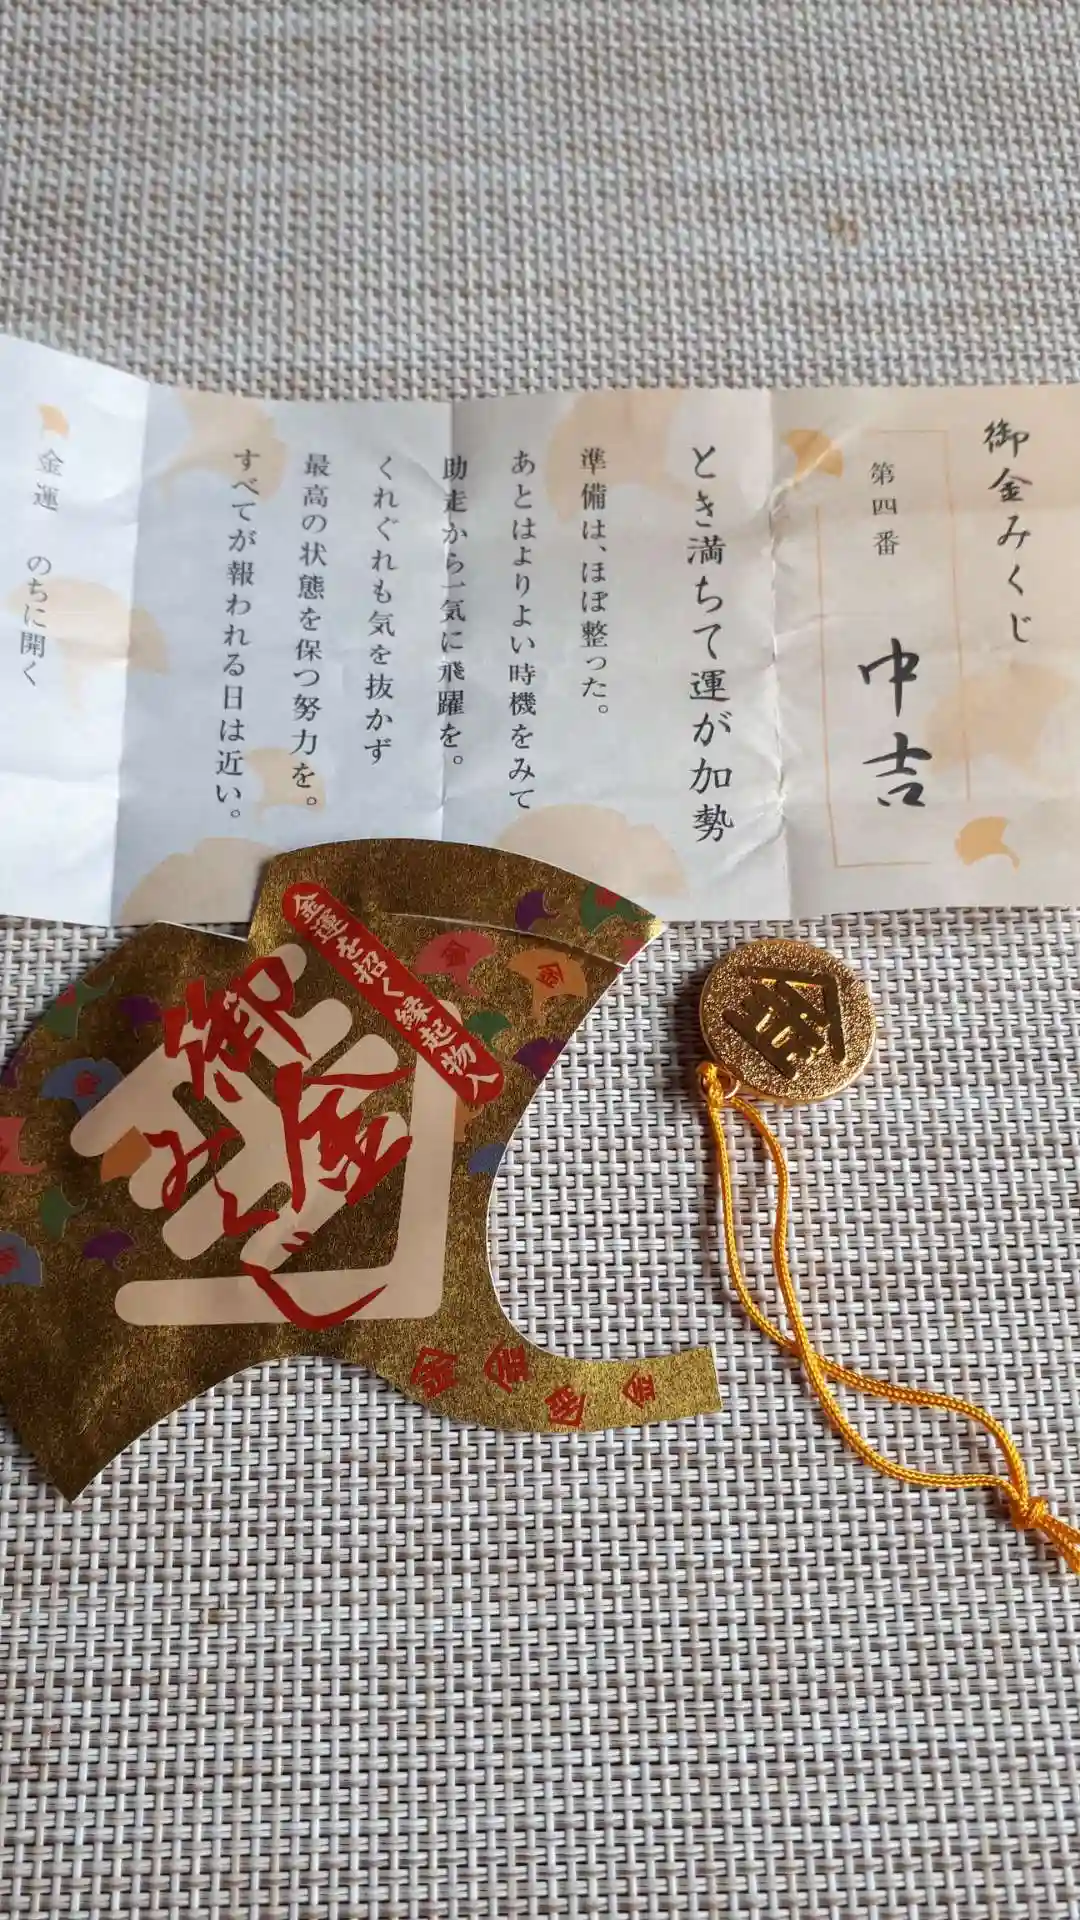 御金みくじ
第四番 中吉
とき満ちて運が加勢
準備は、ほぼ整った。
あとはよりよい時機をみて
助走から一気に飛躍を。
くれぐれも気を抜かず
最高の状態を保つ努力を。
すべてが報われる日は近い。
金運 のちに開く
金運を招く縁起物入
御金みくじ
金
金
金
金
金
金
金